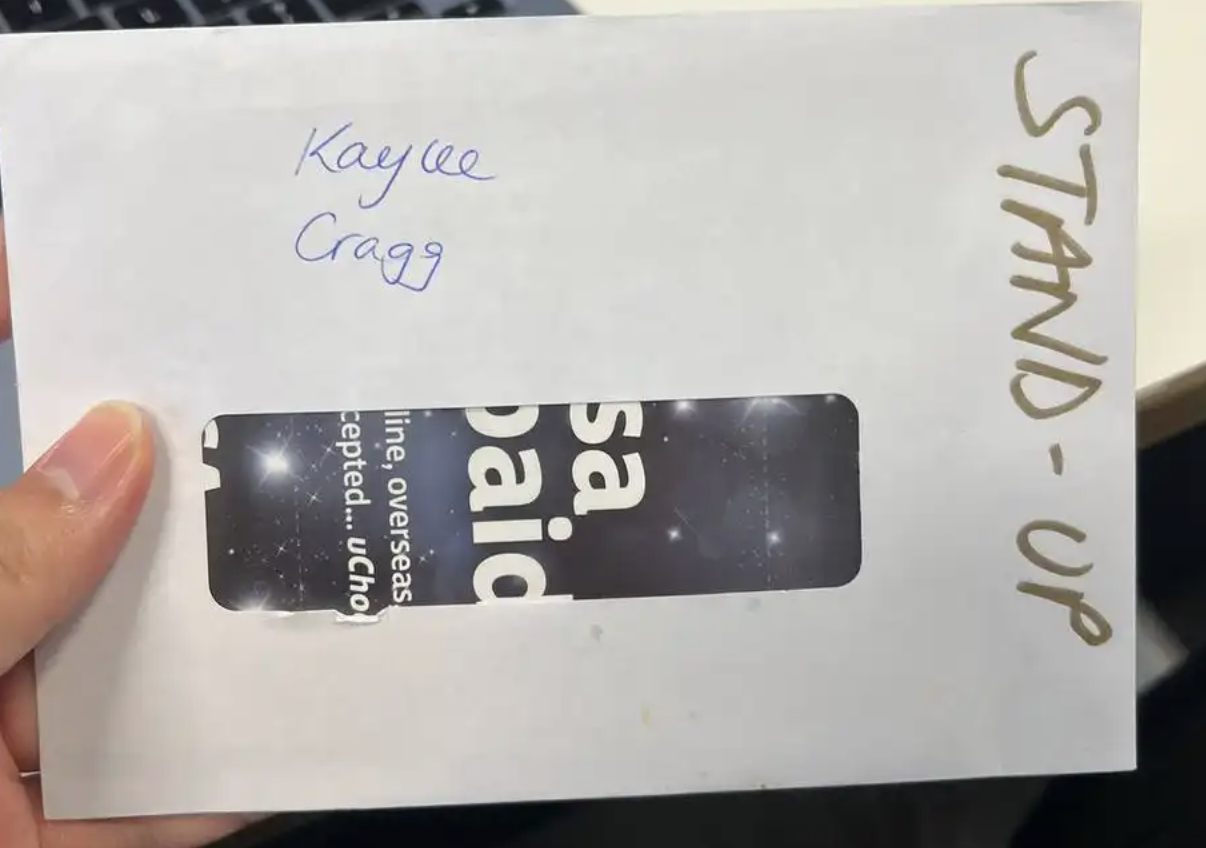 Kaylee
Cragg
STAND-UP
sa
paid
line, overseas
cepted... uCho